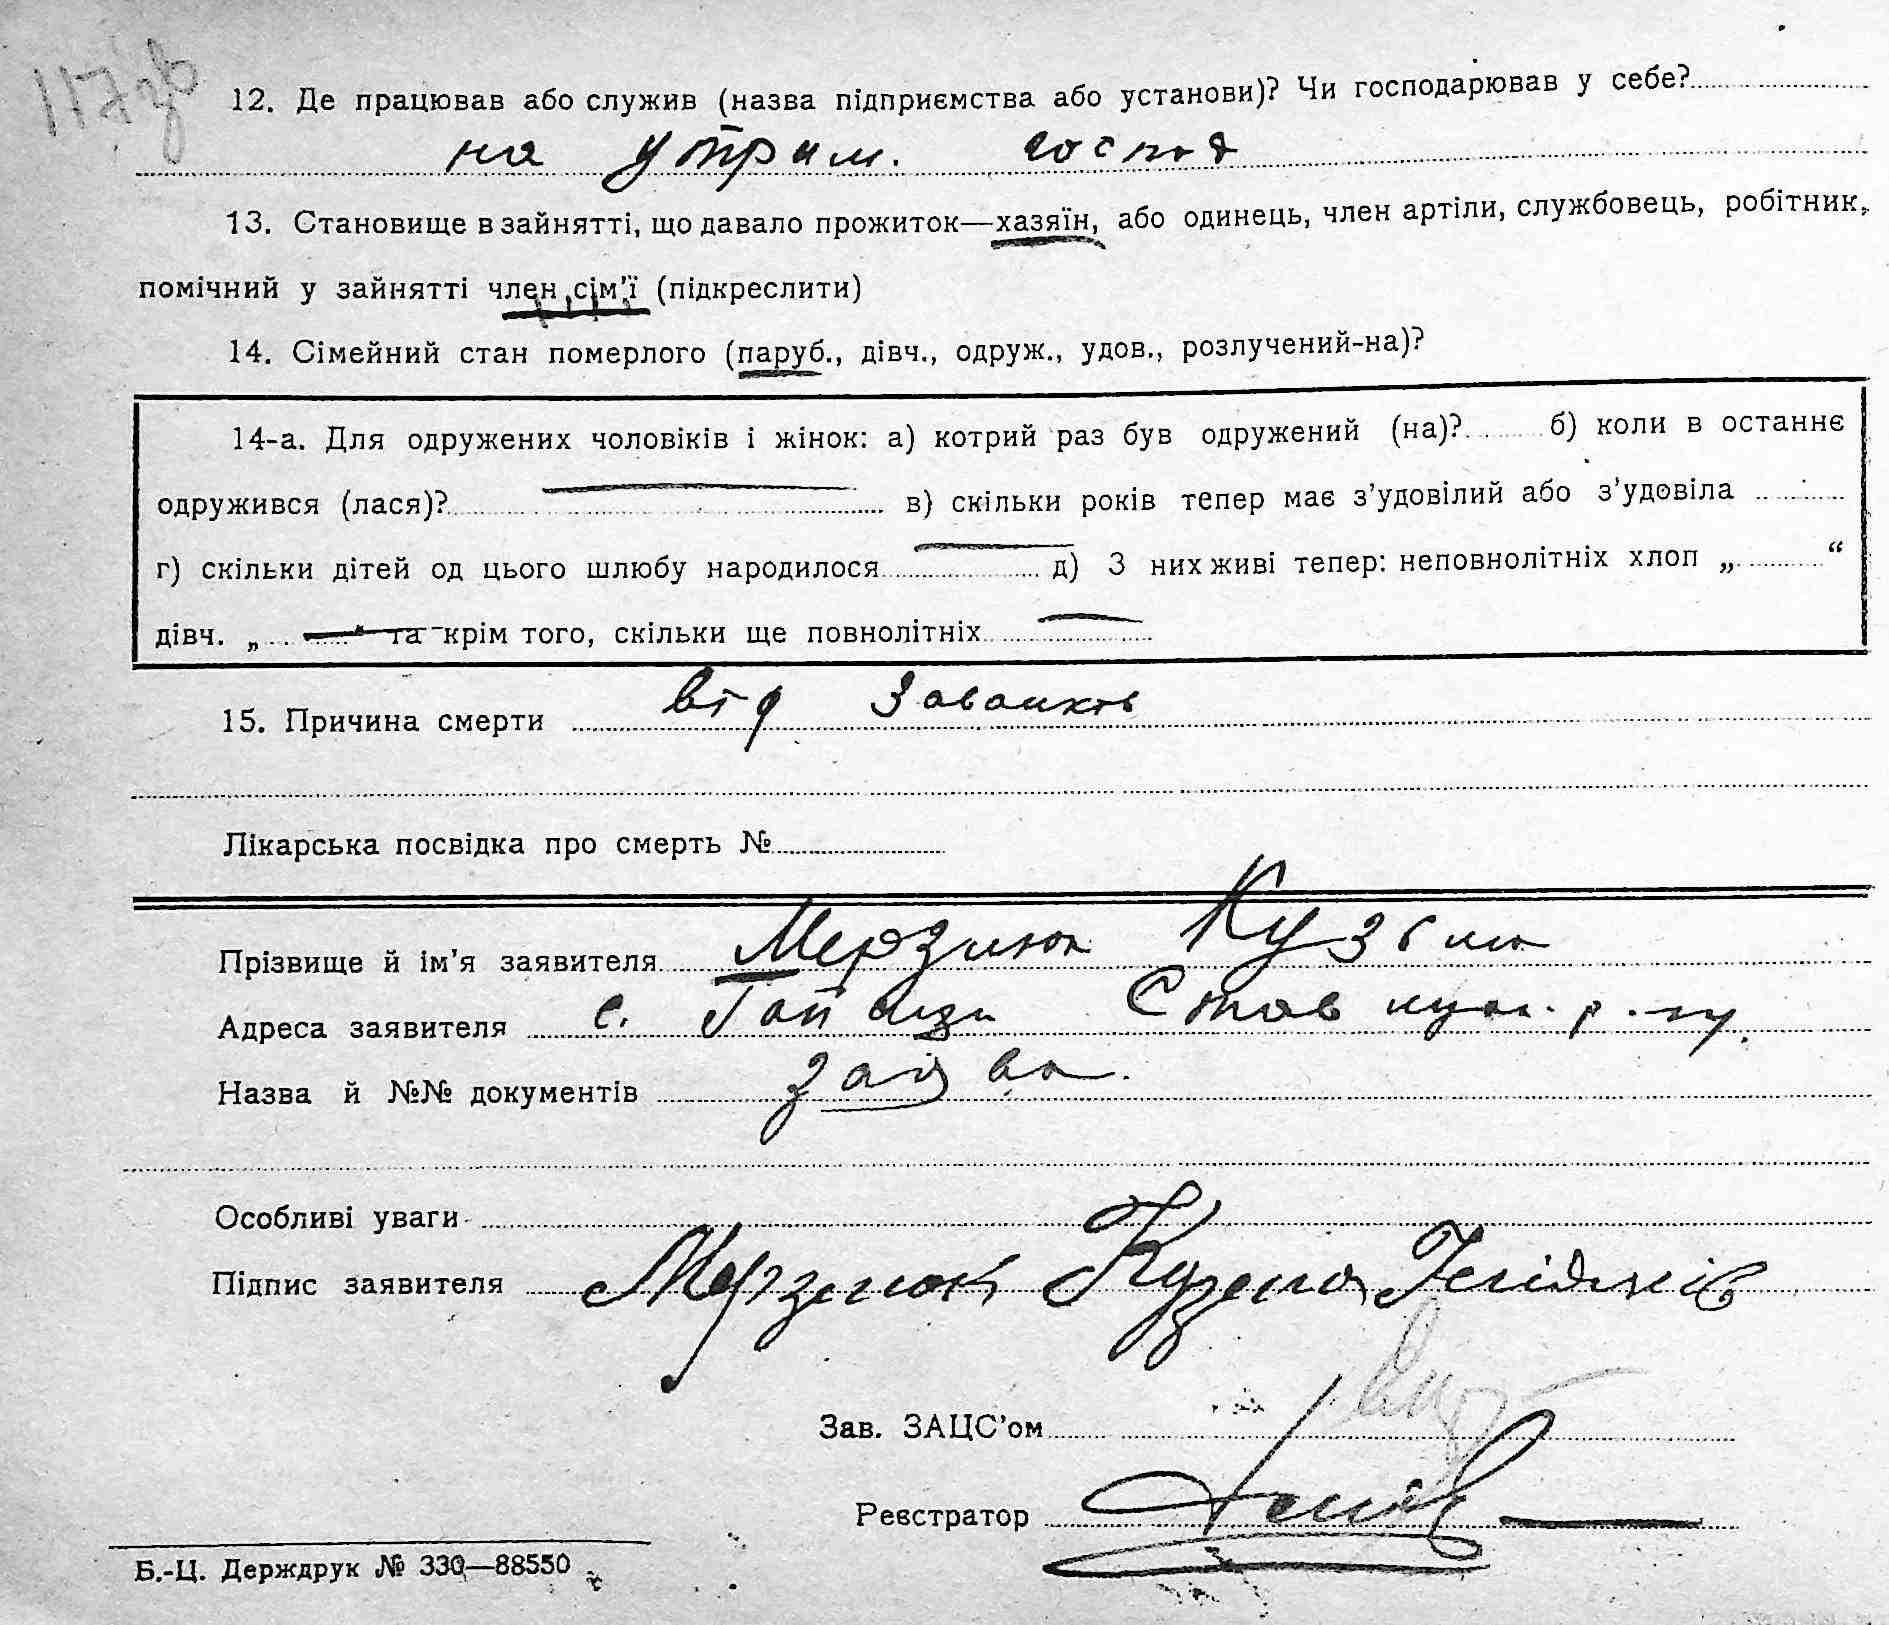 117зв
12. Де працював або служив (назва підприємства або установи)? Чи господарював у себе?
на утрим. господ
13. Становище в зайнятті, що давало прожиток—хазяїн, або одинець, член артіли, службовець, робітник,
помічний у зайнятті член сім'ї (підкреслити)
14. Сімейний стан померлого (паруб., дівч., одруж., удов., розлучений-на)?
14-а. Для одружених чоловіків і жінок: а) котрий раз був одружений (на)? б) коли в останнє
одружився (лася)? в) скільки років тепер має з'удовілий або з'удовіла
г) скільки дітей од цього шлюбу народилося д) З них живі тепер: неповнолітніх хлоп „ “
дівч. „ “ та крім того, скільки ще повнолітніх
15. Причина смерти від
Лікарська посвідка про смерть №
Прізвище й ім'я заявителя Мерзлюк Кузьма
Адреса заявителя с. р-ну.
Назва й №№ документів заява.
Особливі уваги
Підпис заявителя Мерзлюк Кузьма
Зав. ЗАЦС'ом
Реєстратор
Б.-Ц. Держдрук № 330—88550